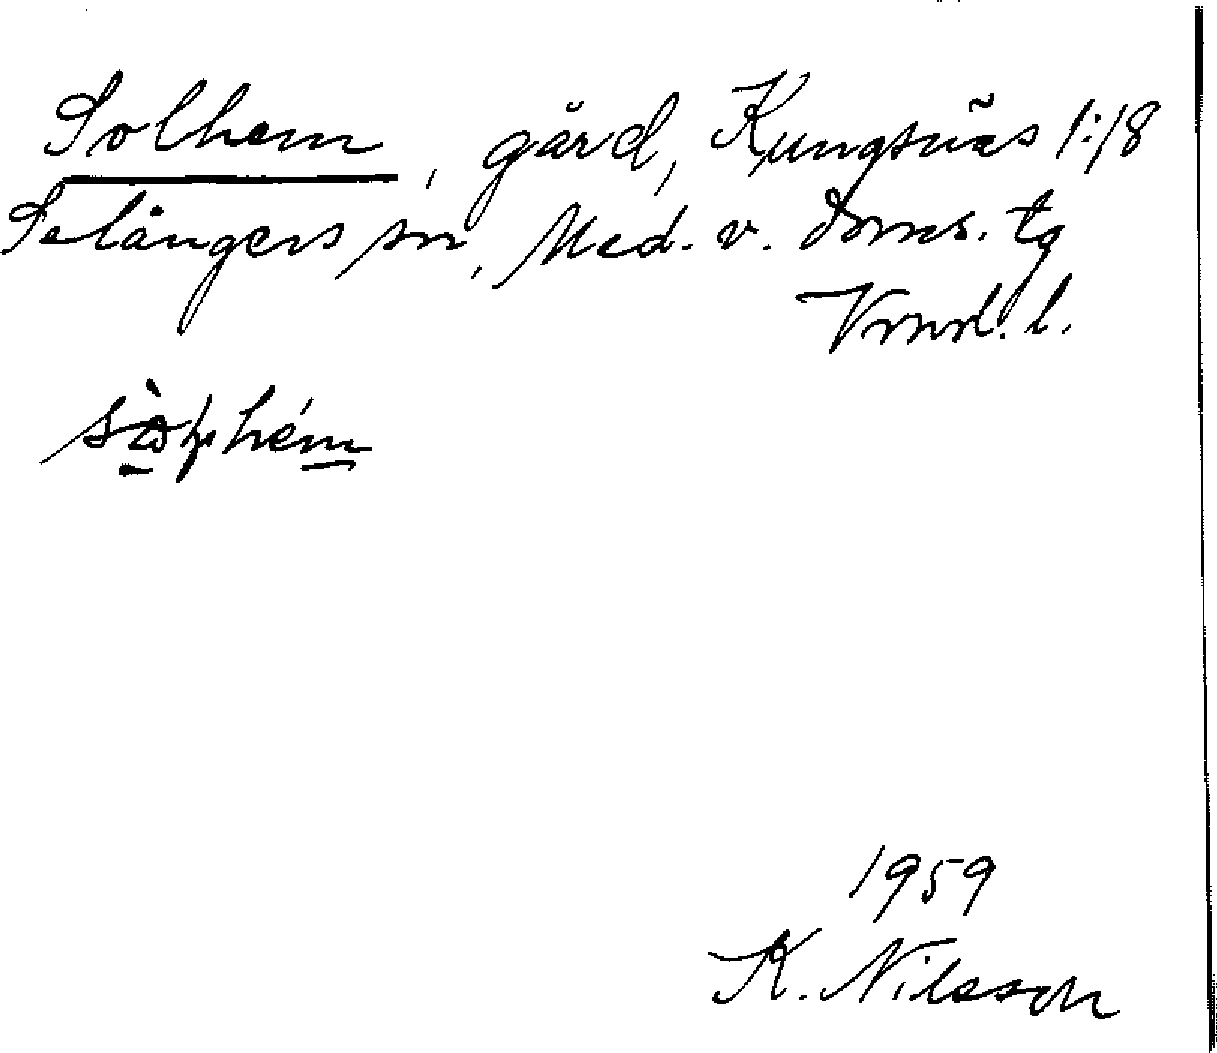 Solhem, gård, Kungsnäs 1:18
Selångers sn, Med. v. doms. tg
Vrnrl. l.
1959
K. Nilsson